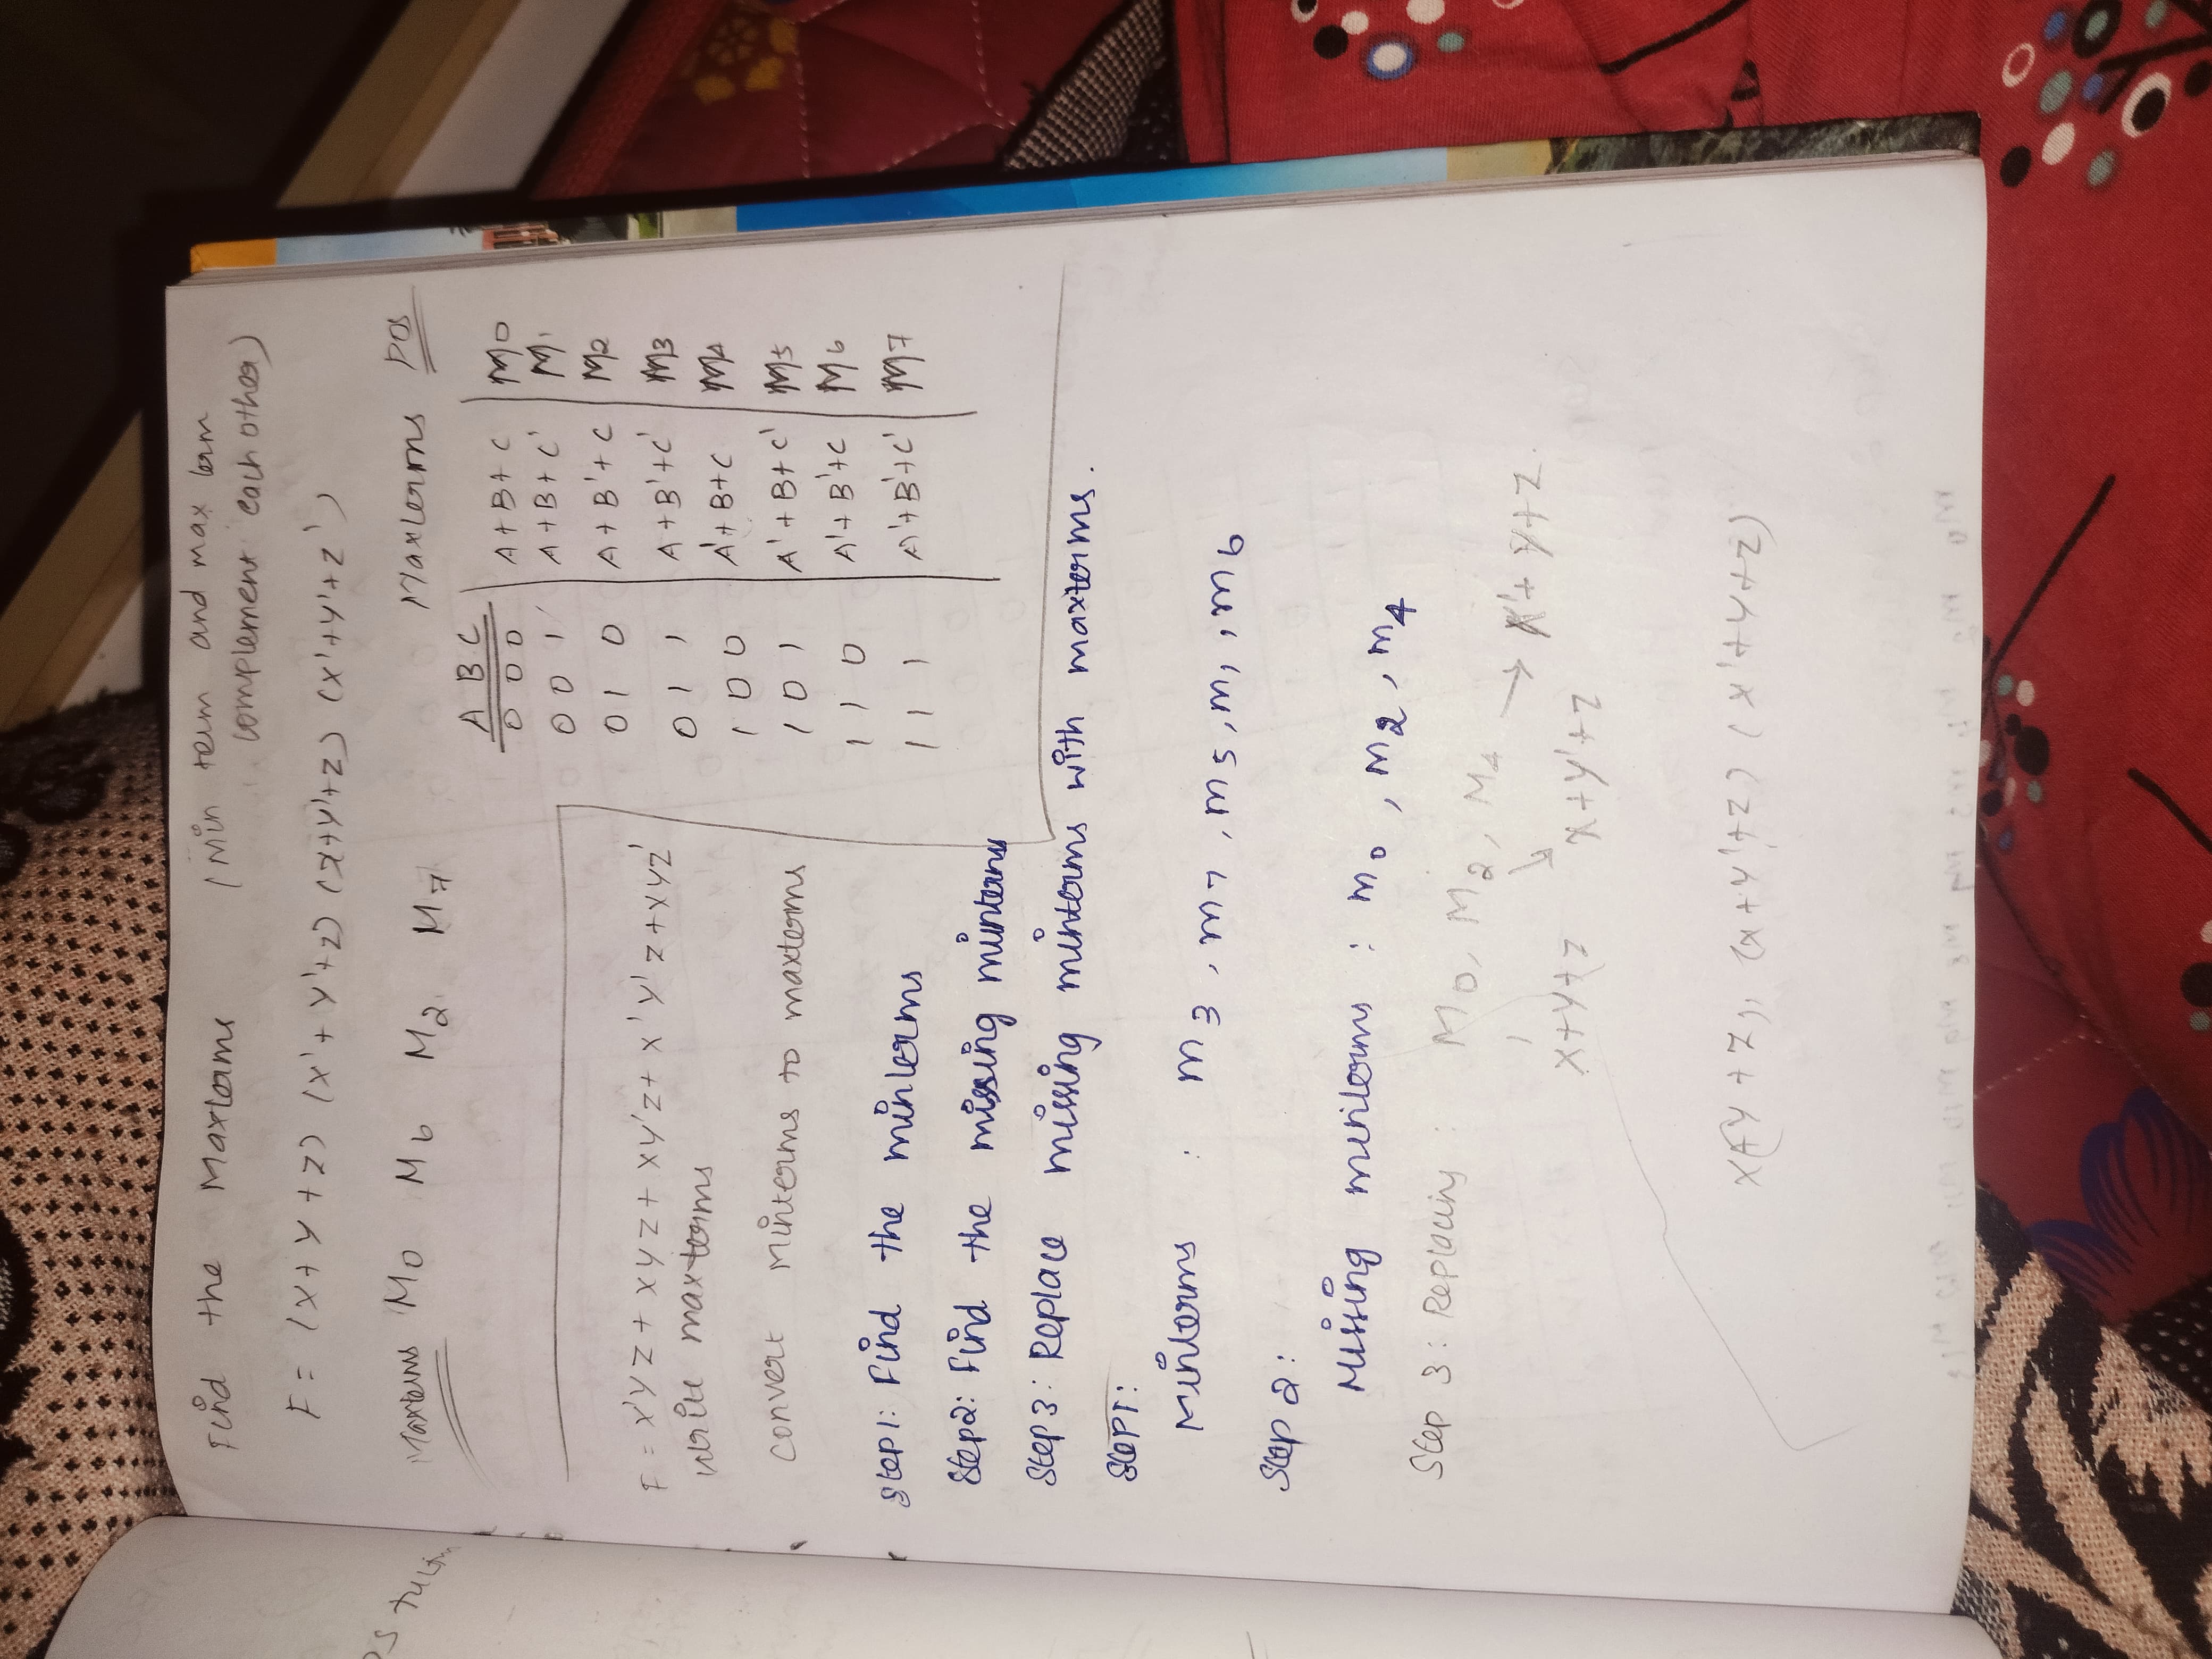 Find the Maxterms (Min term and max term
complement each other)
F = (x+y+z) (x'+y'+z) (x+y'+z) (x'+y'+z')
Maxterms M0 M6 M2 M7
Maxterms POS
A B C
0 0 0 A+B+C M0
0 0 1 A+B+C' M1
0 1 0 A+B'+C M2
0 1 1 A+B'+C' M3
1 0 0 A'+B+C M4
1 0 1 A'+B+C' M5
1 1 0 A'+B'+C M6
1 1 1 A'+B'+C' M7
F = x'yz + xyz + xy'z + x'y'z + xyz'
write maxterms
convert Minterms to maxterms
Step1: Find the minterms
Step2: Find the missing minterms
Step3: Replace missing minterms with maxterms.
Step1:
Minterms : m3, m7, m5, m1, m6
Step 2:
Missing minterms : m0, m2, m4
Step 3: Replacing : M0, M2, M4 → x'+y+z.
x+y+z x+y'+z
x(+y+z), (x+y'+z) (x'+y+z)